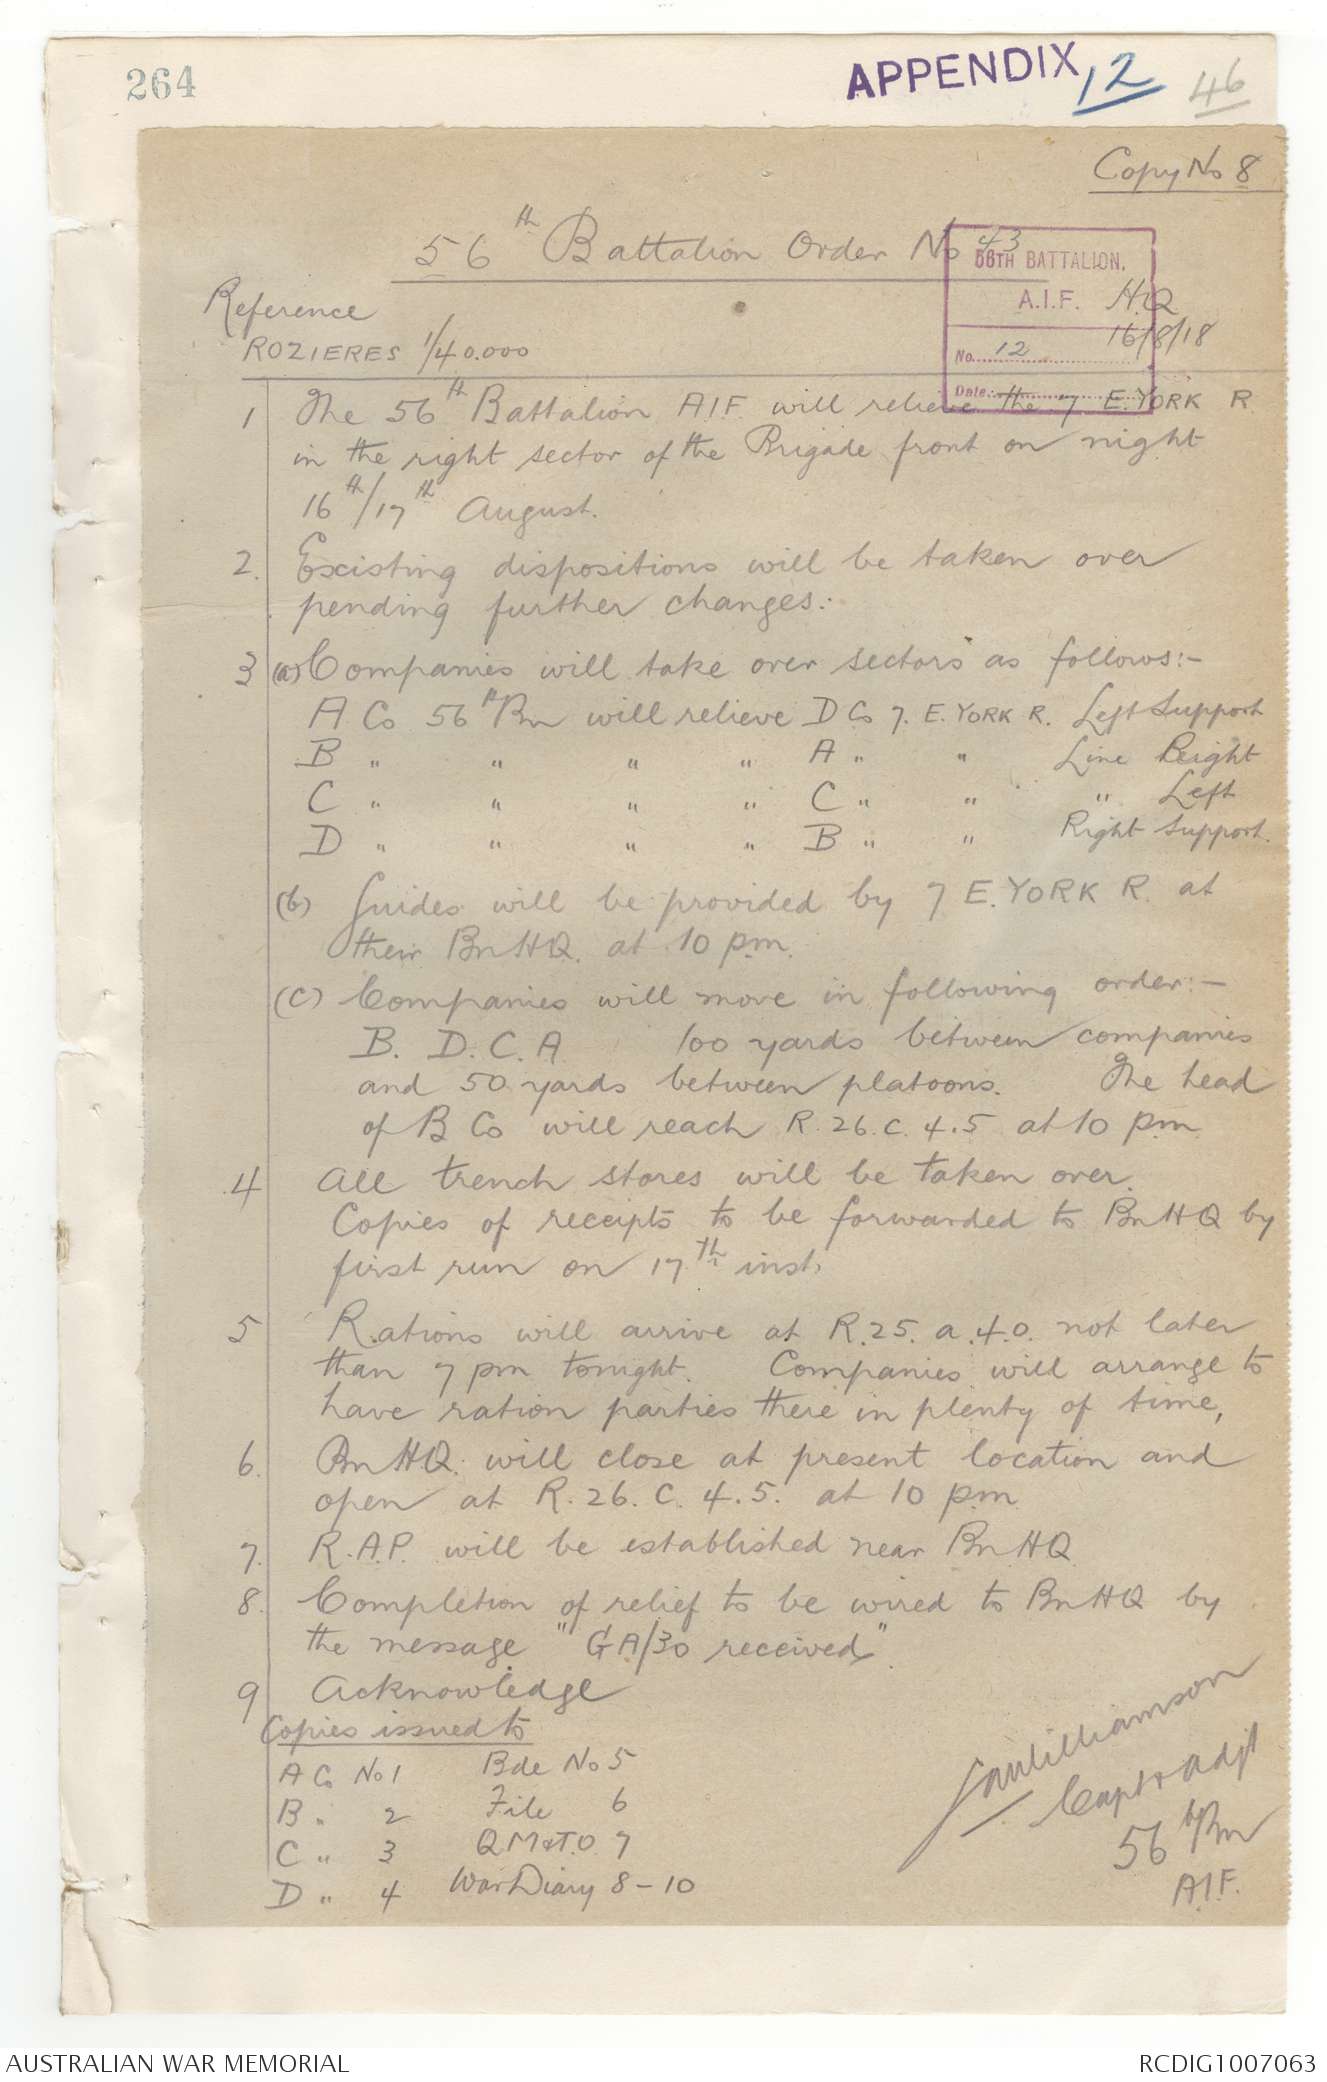 264
APPENDIX 12 46
Copy No 8
56th Battalion Order No 43
56TH BATTALION.
A.I.F. H.Q
16/8/18
No. 12
Date
Reference
ROZIERES 1/40.000
1 The 56th Battalion A.I.F. will relieve the 7 E. YORK R
in the right sector of the Brigade front on night
16th/17th August.
2. Existing dispositions will be taken over
pending further changes:
3 (a) Companies will take over sectors as follows:-
A Co 56th Bn will relieve D Co 7. E. YORK R. Left Support
B " " " " A " " Line Right
C " " " " C " " " Left
D " " " " B " " Right Support.
(b) Guides will be provided by 7 E. YORK R. at
their Bn HQ. at 10 pm.
(c) Companies will move in following order:-
B. D. C. A 100 yards between companies
and 50 yards between platoons. The head
of B Co will reach R.26.c.4.5 at 10 pm
4 All trench stores will be taken over.
Copies of receipts to be forwarded to Bn HQ by
first run on 17th inst.
5 Rations will arrive at R.25.a.4.0. not later
than 7 pm tonight. Companies will arrange to
have ration parties there in plenty of time,
6. Bn H.Q. will close at present location and
open at R.26.C.4.5. at 10 pm
7. R.A.P. will be established near Bn HQ
8. Completion of relief to be wired to Bn HQ by
the message "GA/30 received"
9 Acknowledge
Copies issued to
A Co No 1 Bde No 5
B " 2 File 6
C " 3 Q M & T.O. 7
D " 4 War Diary 8-10
Williamson
Capt & Adjt
56th Bn
A.I.F.
AUSTRALIAN WAR MEMORIAL
RCDIG1007063